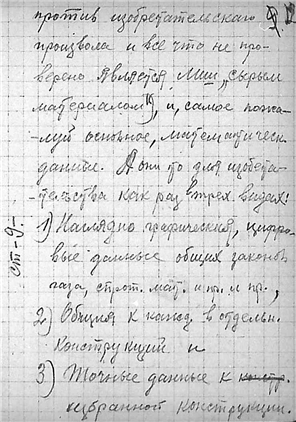 против изобретательскаго
произвола и все что не про-
верено является лиш „сырым
материалом", и, самое пожа-
-луй основное, математическ.
данные. А они то для изобета-
-тельства как раз в трех видах:
1) Наглядно графические, цифро-
вые данные общих законов
газа, строт. мат. и пр. и пр.,
2) Общия к кажд. в отдельн.
конструкций и
3) Точные данные к констр.
избранной конструкции.
ст-9-